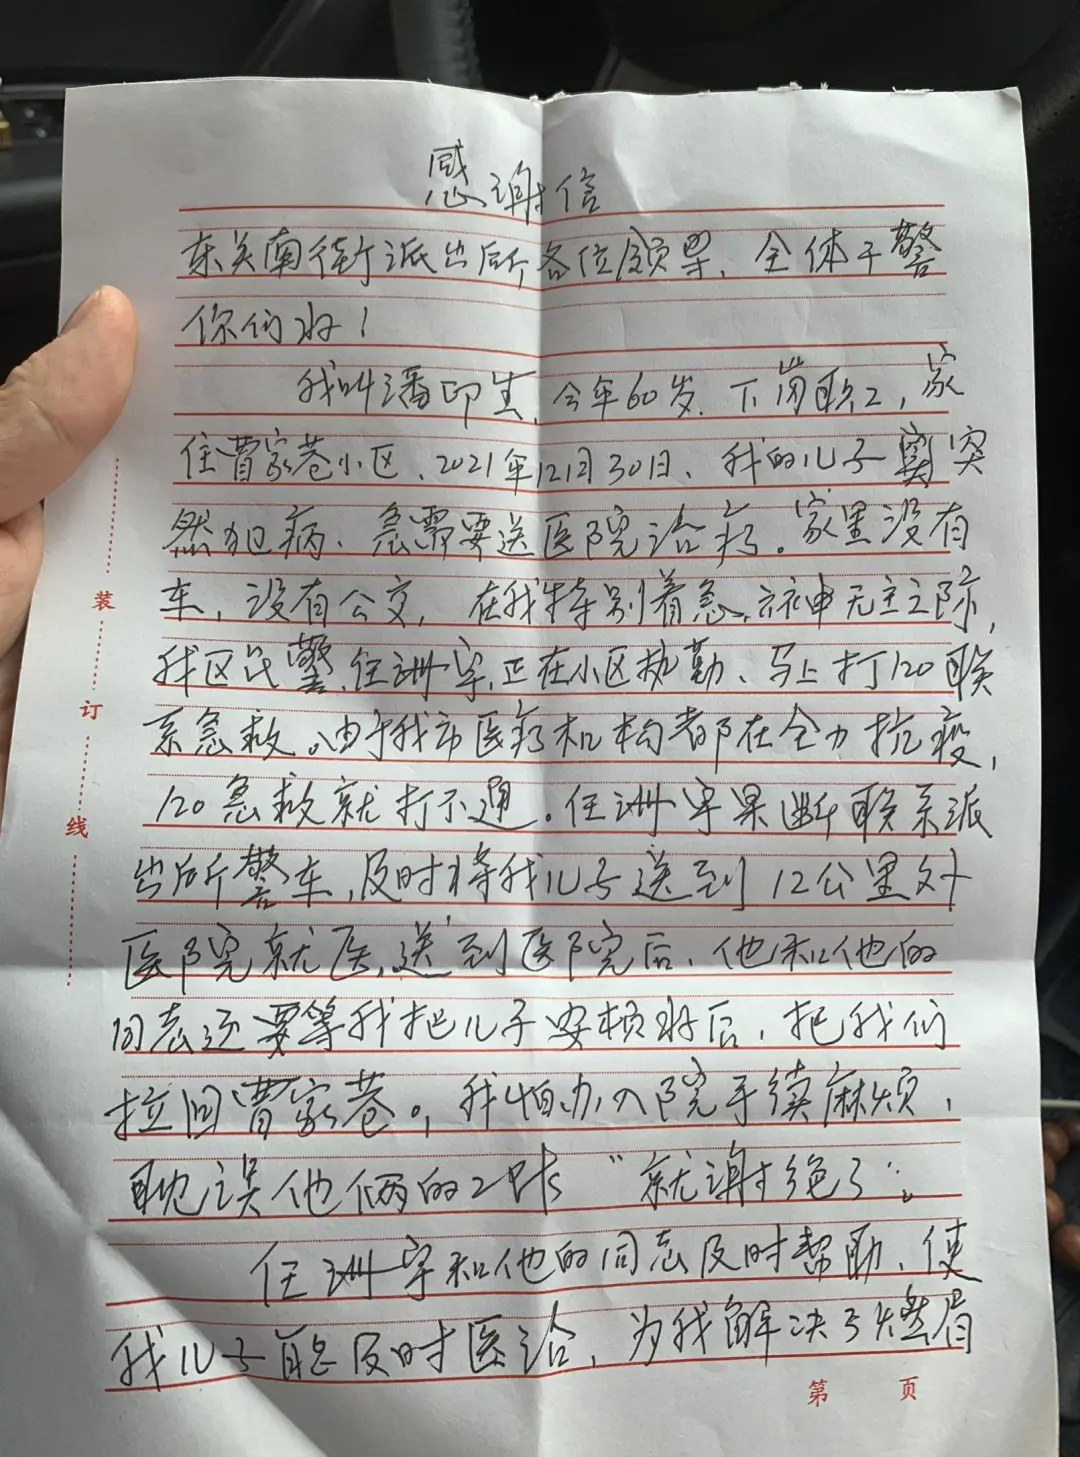 感谢信
东关南街派出所各位领导、全体干警
你们好!
我叫潘印生,今年60岁.下岗职工,家
住曹家巷小区、2021年12月30日、我的儿子突
然犯病、急需要送医院治疗。家里没有
车,没有公交,在我特别着急、六神无主之际,
我区民警、任洲宇、正在小区执勤、马上打120联
系急救。由于我市医疗机构都在全力抗疫,
120急救就打不通。任洲宇果断联系派
出所警车,及时将我儿子送到12公里外
医院就医,送到医院后、他和他的
同志还要等我把儿子安顿好后,把我们
拉回曹家巷。我怕办入院手续麻烦,
耽误他俩的工作“就谢绝了”。
任洲宇和他的同志及时帮助、使
我儿子能及时医治,为我解决了燃眉
装
订
线
第 页